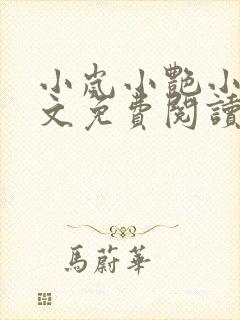 小嵐小艷小
文免費閱讀
馬蔚華